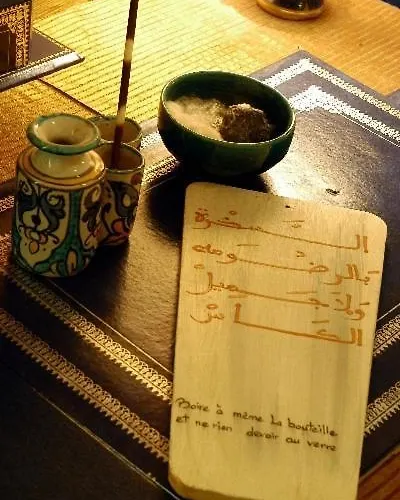 بالرضومه
ولا جميل
الكاس
Boire à même la bouteille
et ne rien devoir au verre